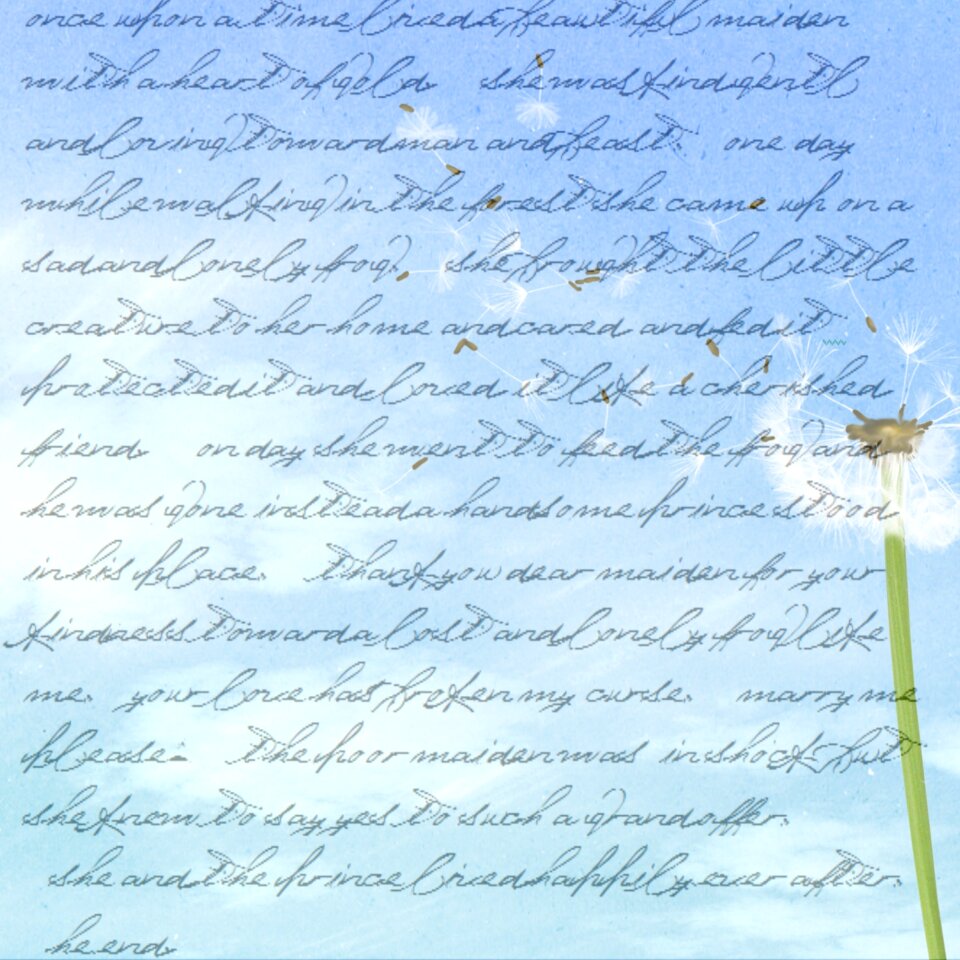 once upon a time lived a beautiful maiden
with a heart of gold she was kind gentl
and loving toward man and beast. one day
while walking in the forest she came up on a
sad and lonely frog. she brought the little
creature to her home and cared and fed it
protected it and loved it like a cherished
friend. on day she went to feed the frog and
he was gone instead a handsome prince stood
in his place. thank you dear maiden for your
kindness toward a lost and lonely frog like
me. your love has broken my curse. marry me
please. the poor maiden was in shock but
she knew to say yes to such a grand offer.
she and the prince lived happily ever after.
he end